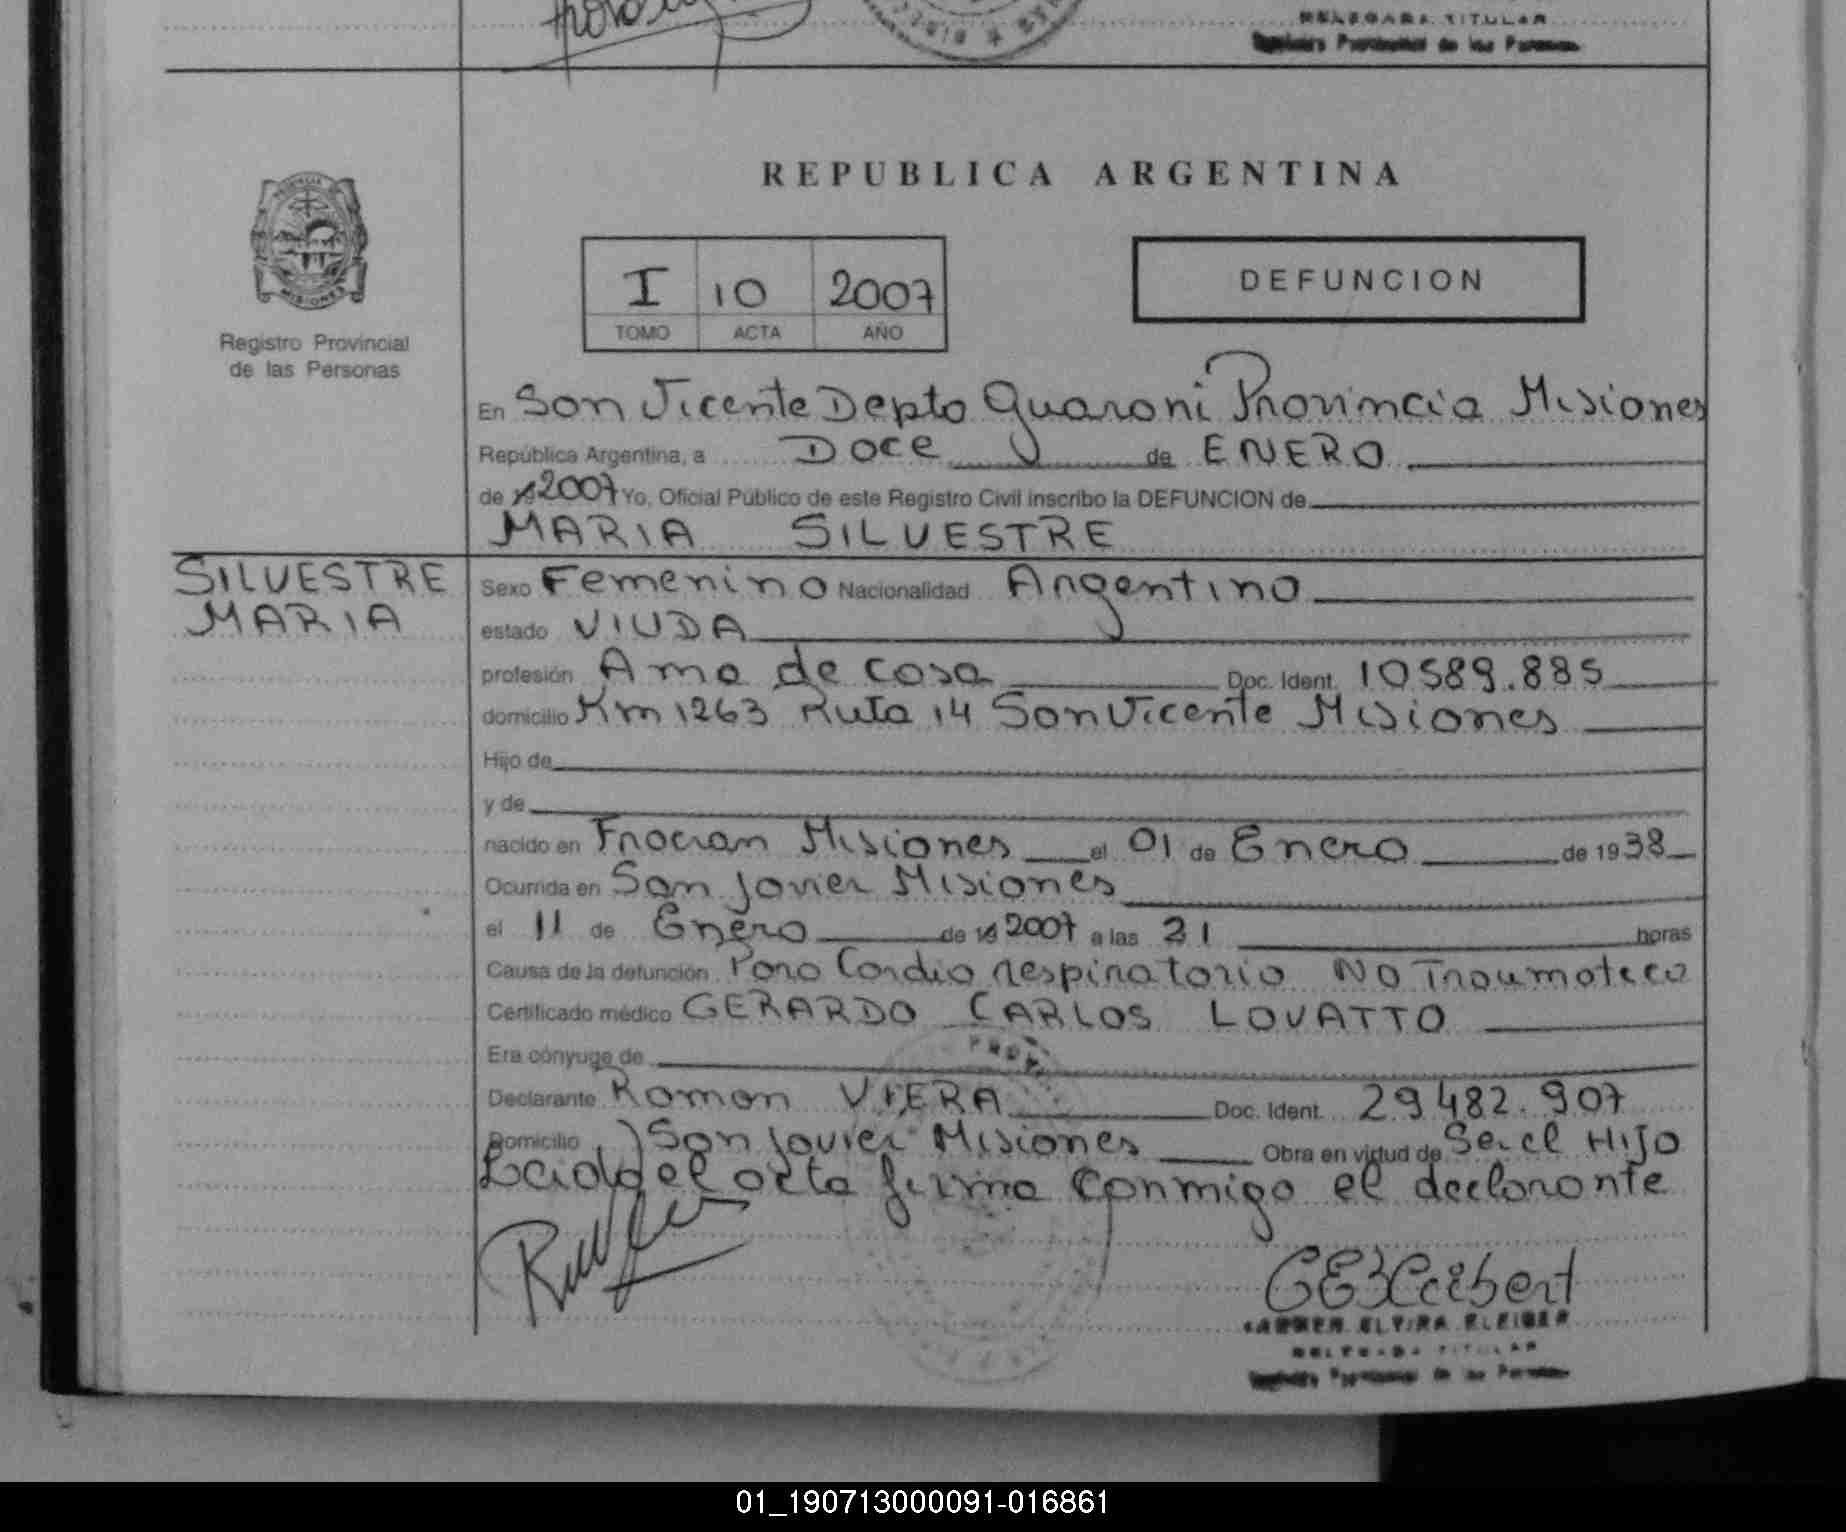 DELEGADA TITULAR
Registro Provincial de las Personas
REPUBLICA ARGENTINA
PROVINCIA DE
MISIONES
I 10 2007
TOMO ACTA AÑO
DEFUNCION
Registro Provincial
de las Personas
En San Vicente Depto Guarani Provincia Misiones
República Argentina, a Doce de ENERO
de 19 2007 Yo, Oficial Público de este Registro Civil inscribo la DEFUNCION de
MARIA SILVESTRE
SILVESTRE
MARIA
Sexo Femenino Nacionalidad Argentina
estado VIUDA
profesión Ama de casa Doc. Ident. 10589.885
domicilio Km 1263 Ruta 14 San Vicente Misiones
Hijo de
y de
nacido en Fracran Misiones el 01 de Enero de 1938
Ocurrida en San Javier Misiones
el 11 de Enero de 19 2007 a las 21 horas
Causa de la defunción Paro Cardio respiratorio NO Traumatico
Certificado médico GERARDO CARLOS LOVATTO
Era cónyuge de
Declarante Ramon VIERA Doc. Ident. 29482.907
Domicilio San Javier Misiones Obra en virtud de Ser el HIJO
Leida el acta firma conmigo el declarante
CARMEN ELVIRA
DELEGADA TITULAR
Registro Provincial de las Personas
01_190713000091-016861